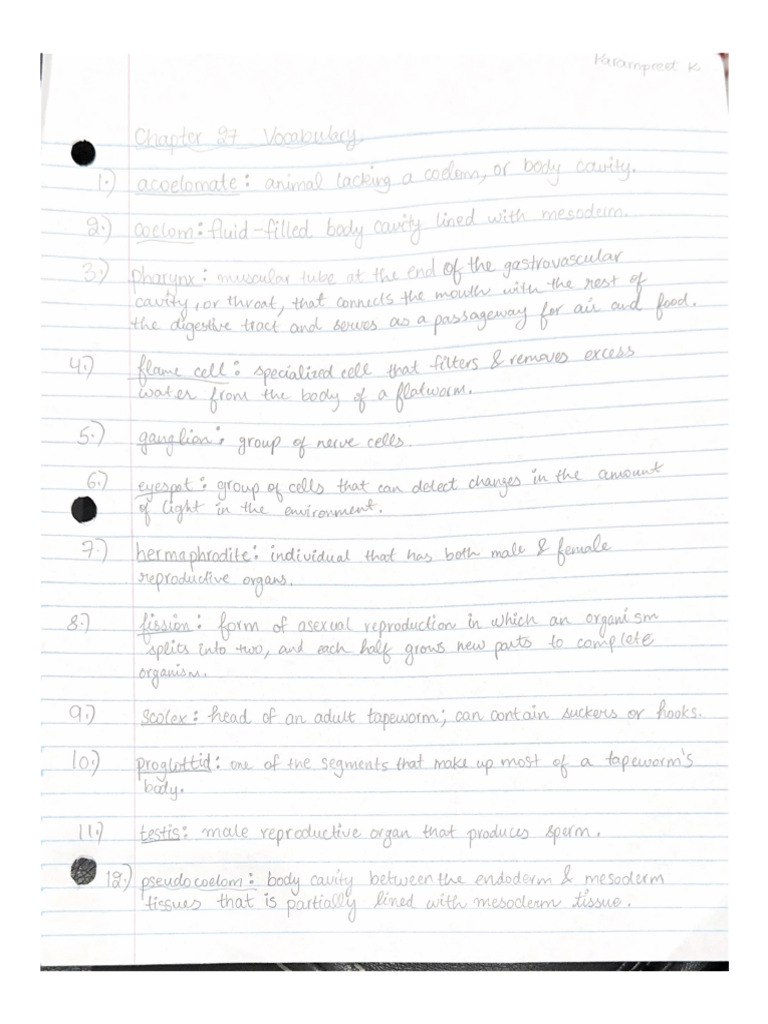 Parampreet K
Chapter 27 Vocabulary
1.) acoelomate: animal lacking a coelom, or body cavity.
2.) coelom: fluid-filled body cavity lined with mesoderm.
3.) pharynx: muscular tube at the end of the gastrovascular
cavity, or throat, that connects the mouth with the rest of
the digestive tract and serves as a passageway for air and food.
4.) flame cell: specialized cell that filters & removes excess
water from the body of a flatworm.
5.) ganglion: group of nerve cells.
6.) eyespot: group of cells that can detect changes in the amount
of light in the environment.
7.) hermaphrodite: individual that has both male & female
reproductive organs.
8.) fission: form of asexual reproduction in which an organism
splits into two, and each half grows new parts to complete
organism.
9.) scolex: head of an adult tapeworm; can contain suckers or hooks.
10.) proglottid: one of the segments that make up most of a tapeworm's
body.
11.) testis: male reproductive organ that produces sperm.
12.) pseudocoelom: body cavity between the endoderm & mesoderm
tissues that is partially lined with mesoderm tissue.